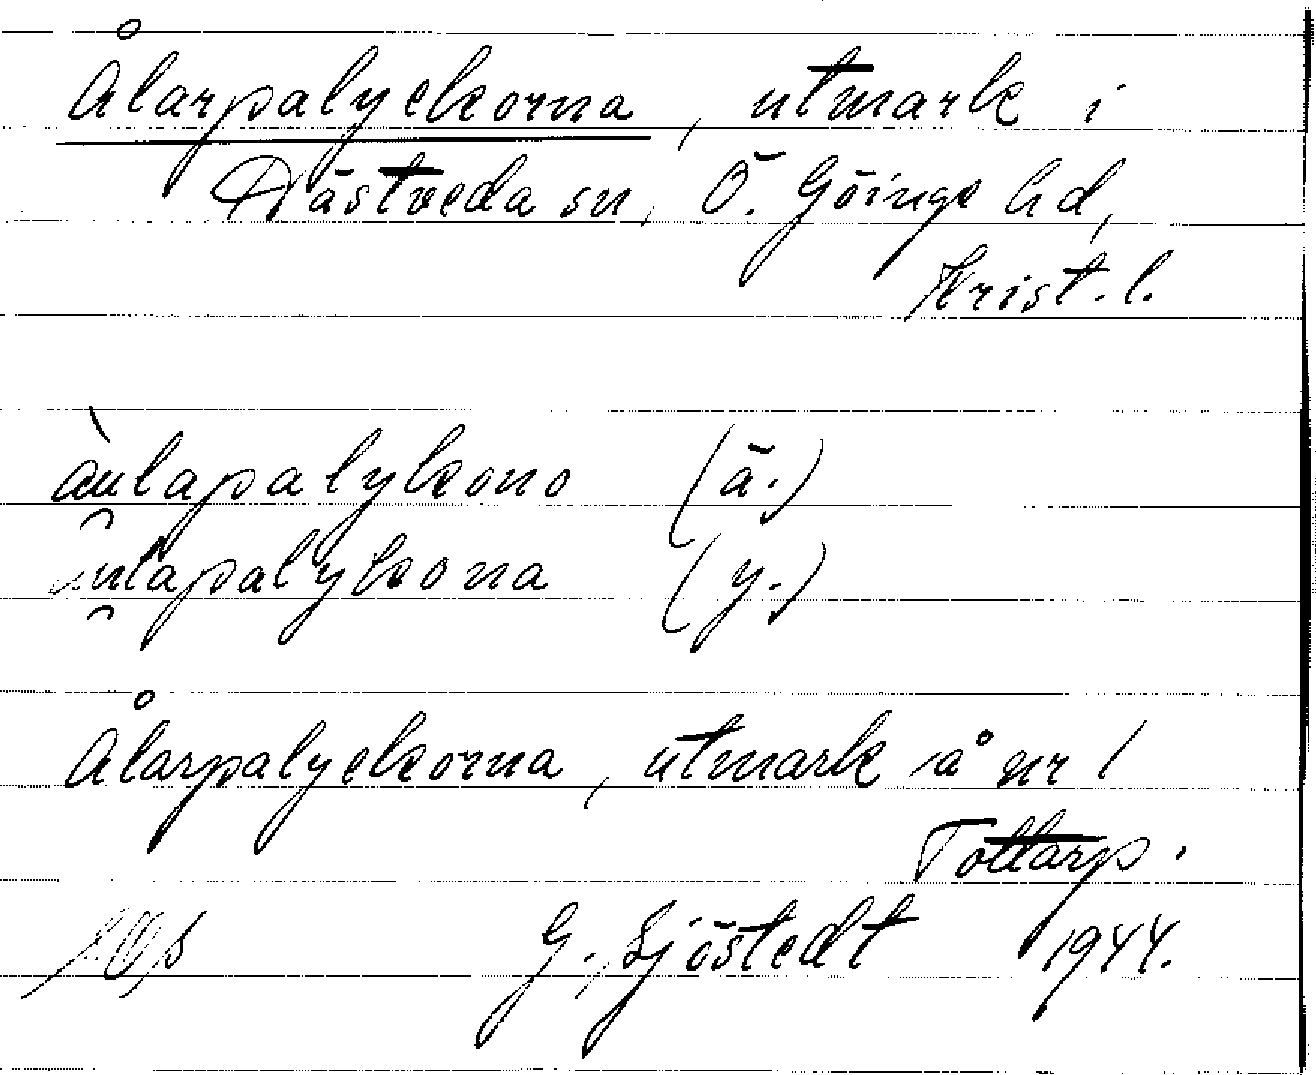 Ålarpalyckorna, utmark i
Västveda sn, Ö. Göinge hd,
Krist. l.
àulapalykono (ä.)
aulapalykona (y.)
Ålarpalyckorna, utmark å nr 1
Tottarp.
G. Sjöstedt 1944.